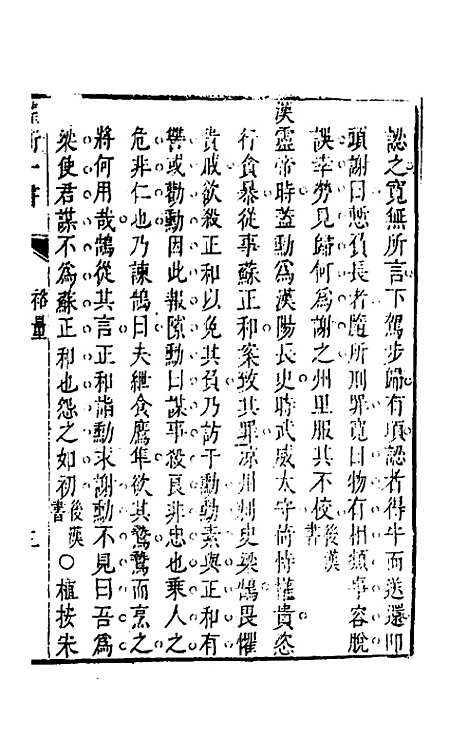 認之寬無所言下駕步歸有項認者得牛而送還叩
頭謝曰慙負長者隨所刑罪寬曰物有相類事容脫
誤幸勞見歸何爲謝之州里服其不挍後漢書
漢靈帝時蓋勳爲漢陽長史時武威太守倚恃權貴恣
行貪暴從事蘇正和案致其罪凉州刺史梁鵠畏懼
貴戚欲殺正和以免其負乃訪于勳勳素與正和有
讐或勸勳因此報隙勳曰謀事殺良非忠也乘人之
危非仁也乃諫鵠曰夫紲食鷹隼欲其鷙鷙而烹之
將何用哉鵠從其言正和詣勳求謝勳不見曰吾爲
梁使君謀不爲蘇正和也怨之如初後漢書○植按朱
裕量
三